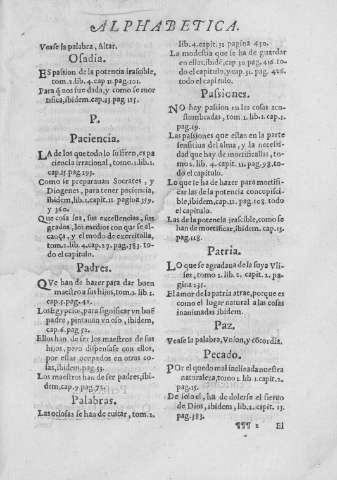 ALPHABETICA.
Vease la palabra, Altar.
Osadia.
ES passion de la potencia irascible,
tom. 2. lib. 4. cap. 11. pag. 101.
Para q̃ nos fue dada, y como se mor
tifica, ibidem. cap. 23. pag. 115.
P.
Paciencia.
LA de los que todo lo sufren, es pa
ciencia irracional, tomo. 1. lib. 1.
cap. 25 pag. 193.
Como se preparauan Socrates, y
Diogenes, para tener paciencia,
ibidem, lib. 2. capit. 11 pagina 359.
y 360.
Que cosa sea, sus excellencias, sus
grados, los medios con que se al-
cança, y el modo de exercitalla,
tom. 2. lib. 4. cap. 27. pag. 383. to-
do el capitulo.
Padres.
QVe han de hazer para dar buen
maestro a sus hijos, tom. 2. lib. 1.
cap. 5. pag. 42.
Los Egypcios, para significar vn buẽ
padre, pintauan vn oso, ibidem,
cap. 6. pag 52.
Ellos han de ser los maestros de sus
hijos, pero dispensase con ellos,
por estar ocupados en otras co-
sas, ibidem, pag. 53.
Los maestros han de ser padres, ibi-
dem, cap. 9 pag. 72.
Palabras.
Las ociosas se han de euitar, tom. 2.
lib. 4. capit. 32 pagina 430.
La modestia que se ha de guardar
en ellas, ibidẽ, cap 30. pag. 416. to-
do el capitulo, y cap. 31. pag. 426.
todo el capitulo.
Passiones.
NO hay passion en las cosas acos
tumbradas, tom. 2. lib. 2. cap. 1.
pag. 19.
Las passiones que estan en la parte
sensitiua del alma, y la necessi-
dad que hay de mortificallas, to-
mo 2. lib. 4. capit. 11. pag. 98. to-
do el capitulo.
Lo que se ha de hazer para mortifi-
car las de la potencia concupisci-
ble, ibidem, cap. 22. pag. 108. todo
el capitulo.
Las de la potencia irascible, como se
han de mortificar, ibidem. cap. 23.
pag. 118.
Patria.
LO que se agradaua de la suya Vlis-
ses, tomo 2. lib. 2. capit. 2. pa-
gina 231.
El amor de la patria atrae, porque es
como el lugar natural a las cosas
inanimadas ibidem.
Paz.
Vease la palabra, Vnion, y cõcordia.
Pecado.
POr el quedo mal inclinada nuestra
naturaleza, tomo 1. lib 1. capit. 2.
pag. 15.
De solo el, ha de dolerse el sieruo
de Dios, ibidem, lib. 2. capit. 13.
pag. 383.
¶¶¶ 2 El